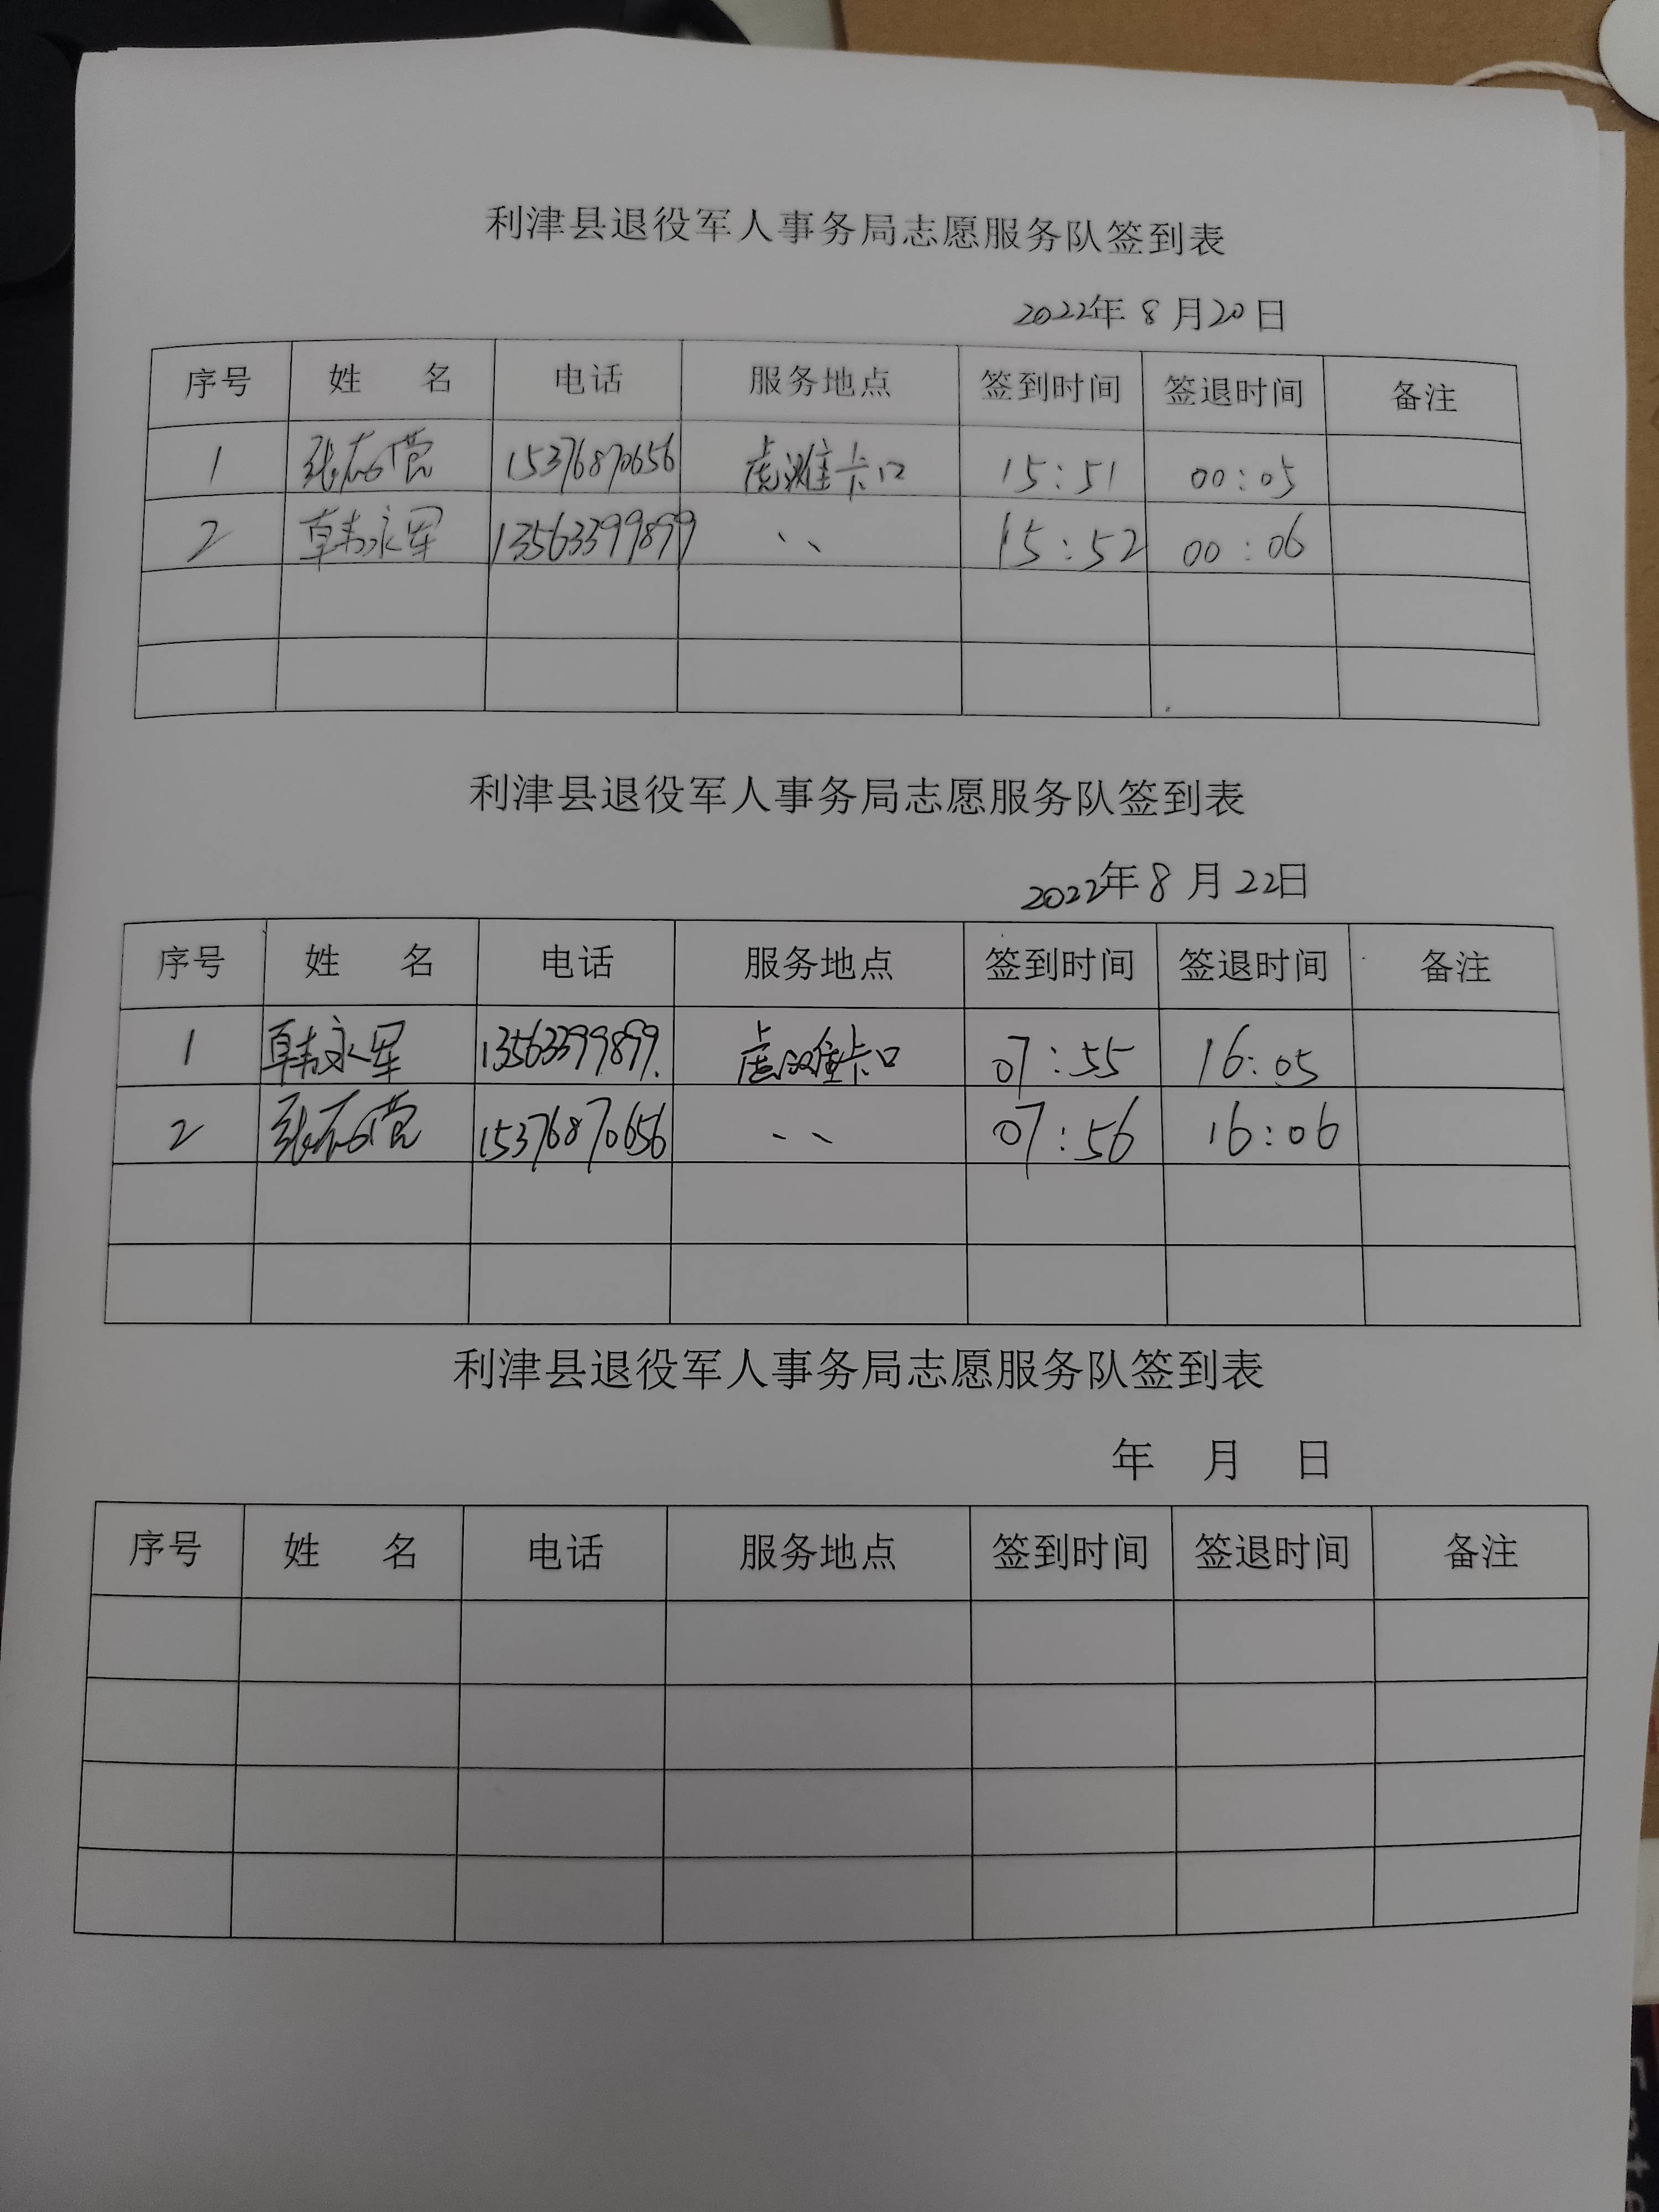 利津县退役军人事务局志愿服务队签到表
2022年 8 月20日
序号 姓 名 电话 服务地点 签到时间 签退时间 备注
1 15376870656 虎滩卡口 15:51 00:05
2 韩永军 13563399899 、、 15:52 00:06
利津县退役军人事务局志愿服务队签到表
2022年 8 月 22日
序号 姓 名 电话 服务地点 签到时间 签退时间 备注
1 韩永军 13563399899. 虎滩卡口 07:55 16:05
2 15376870656 、、 07:56 16:06
利津县退役军人事务局志愿服务队签到表
年 月 日
序号 姓 名 电话 服务地点 签到时间 签退时间 备注